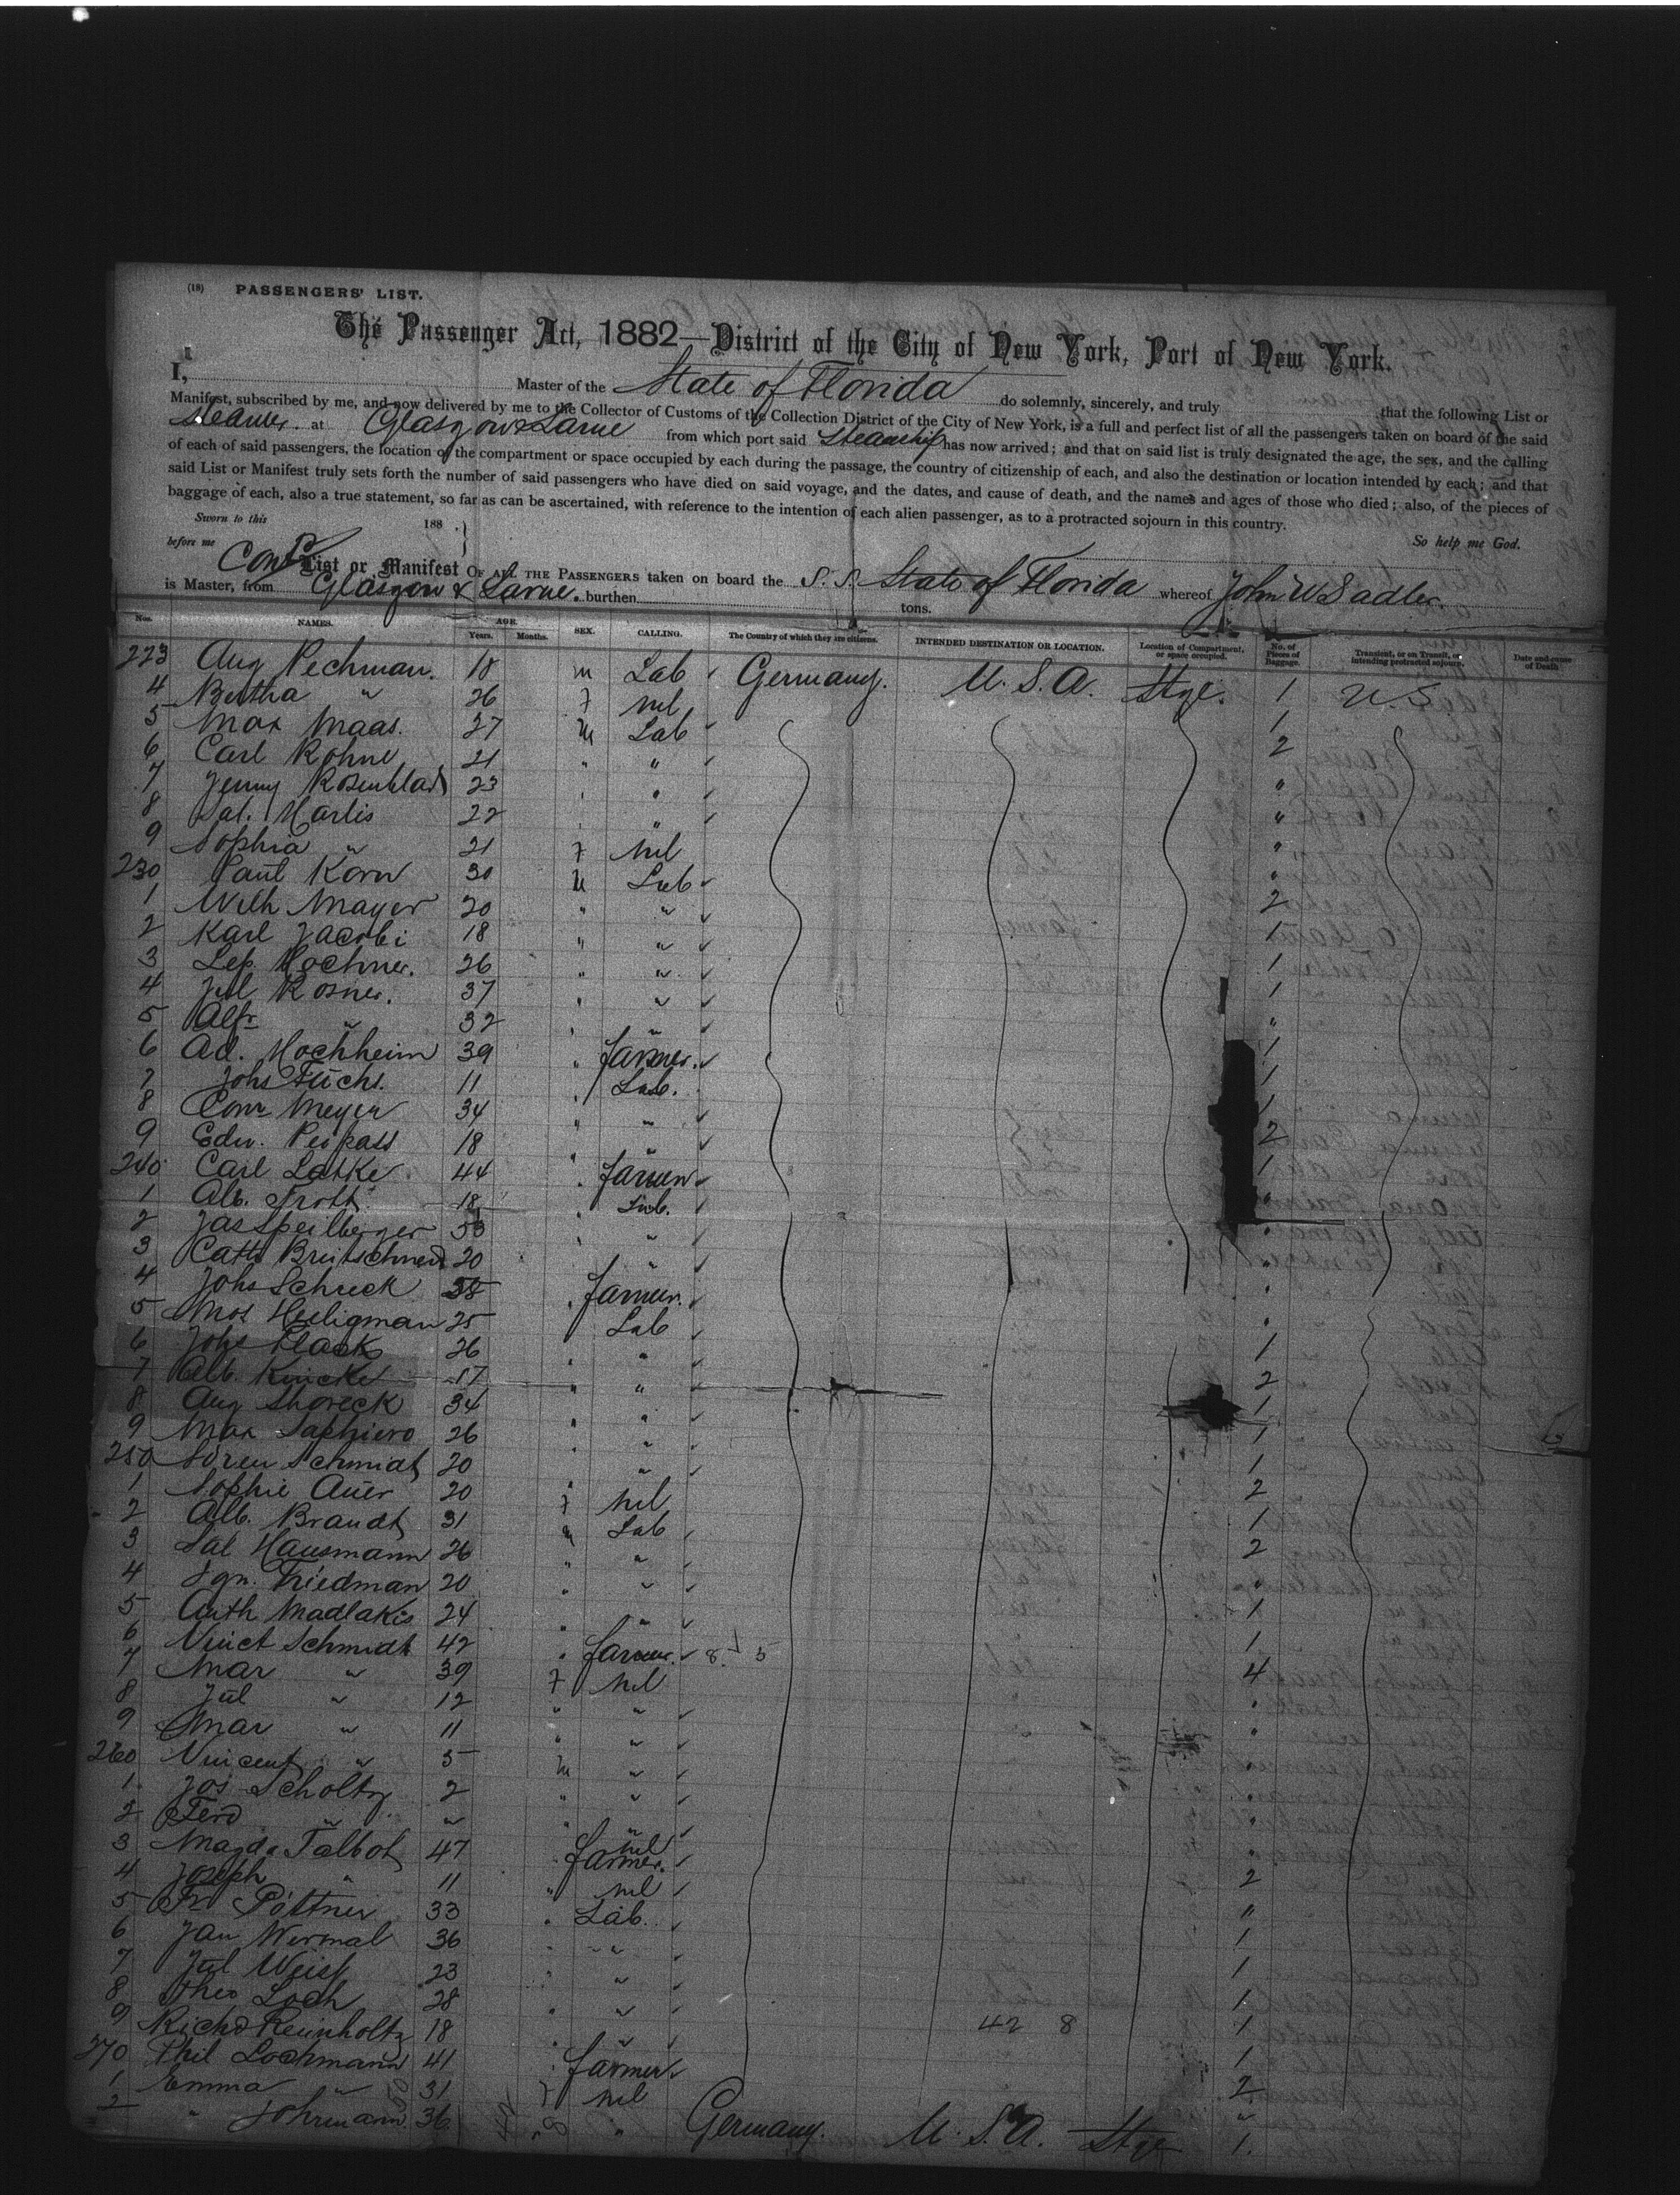 (18) PASSENGERS' LIST.
The Passenger Act, 1882—District of the City of New York, Port of New York.
I, Master of the State of Florida do solemnly, sincerely, and truly that the following List or
Manifest, subscribed by me, and now delivered by me to the Collector of Customs of the Collection District of the City of New York, is a full and perfect list of all the passengers taken on board of the said
Steamer at Glasgow & Larne from which port said Steamship has now arrived; and that on said list is truly designated the age, the sex, and the calling
of each of said passengers, the location of the compartment or space occupied by each during the passage, the country of citizenship of each, and also the destination or location intended by each; and that
said List or Manifest truly sets forth the number of said passengers who have died on said voyage, and the dates, and cause of death, and the names and ages of those who died; also, of the pieces of
baggage of each, also a true statement, so far as can be ascertained, with reference to the intention of each alien passenger, as to a protracted sojourn in this country.
Sworn to this 188 . So help me God.
before me
List or Manifest OF ALL THE PASSENGERS taken on board the S. S. State of Florida whereof John W Sadler.
is Master, from Glasgow & Larne. burthen tons.
Nos. NAMES. AGE. Years. Months. SEX. CALLING. The Country of which they are citizens. INTENDED DESTINATION OR LOCATION. Location of Compartment, or space occupied. No. of Pieces of Baggage. Transient, or on Transit, or intending protracted sojourn. Date and cause of Death
223 Aug Pechman. 18 m Lab Germany. U. S. A. Stge. 1 U.S.
4 Bertha " 26 f nil
5 Max Maas. 27 m Lab 1
6 Carl Rohne 21 " " 2
7 Jenny Rosenblad 23 " " "
8 Sal. Marlis 22 " " "
9 Sophia " 21 f Nil "
230 Paul Korn 30 M Lab "
1 Wilh Mayer 20 " " 2
2 Karl Jacobi 18 " " 1
3 Lep. Hochner. 26 " " 1
4 Jul Rosner. 37 " " 1
5 Alfr " 32 " " "
6 Ad. Hochheim 39 " farmer. 1
7 Johs Fuchs. 11 " Lab. 1
8 Conr Meyer 34 " " 1
9 Edw. Peipass 18 " " 2
240 Carl Latke 44 " farmer 1
1 Alb. Trott. 18 " Lab. "
2 Jas Speilberger " " "
3 Cath Breitschneid 20 " "
4 Johs Schreck 38 " farmer. "
5 Mos Heiligman 25 " Lab "
6 Johs Plack 26 " " 1
7 Alb. Kincke 17 " " 2
8 Aug Shoreck 34 " " 1
9 Max Saphiero 26 " " 1
250 Soren Schmidt 20 " " 1
1 Sophie Auer 20 f nil 2
2 Alb. Brandt 31 m Lab 1
3 Sal Hausmann 26 " " 2
4 Sgn. Friedman 20 " " "
5 Anth Madlakis 24 " " 1
6 Vinct Schmidt 42 " farmer. 8 5 1
7 Mar " 39 f Nil 4
8 Jul " 12 " " "
9 Mar " 11 " " "
260 Vincent " 5 m " "
1 Jos Scholtz 2 " " "
2 Ferd " " " nil "
3 Magda Talbot 47 " farmer. "
4 Joseph " 11 " nil 2
5 Fr Pottner 33 " Lab. "
6 Jan Wermal 36 " " 1
7 Jul Weiss 23 " " 1
8 Theo Loch 28 " " 1
9 Richd Reinholtz 18 " " 42 8 1
270 Phil Lochmann 41 " farmer 1
1 Emma " 31 f nil 2
2 " Johrmann 36 " " Germany. U. S. A. Stge 1.